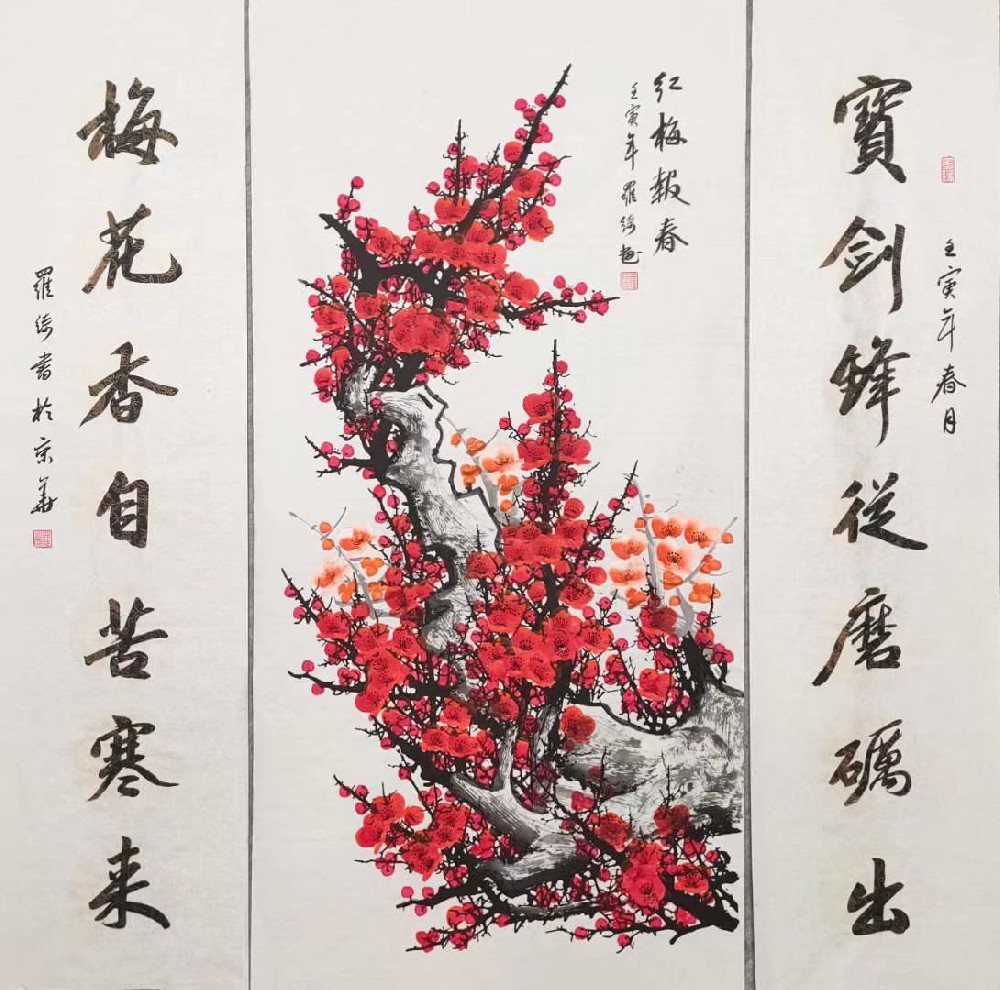 壬寅年春月
寶剑鋒從磨礪出
红梅報春
壬寅年羅绮画
梅花香自苦寒来
羅绮書於京華